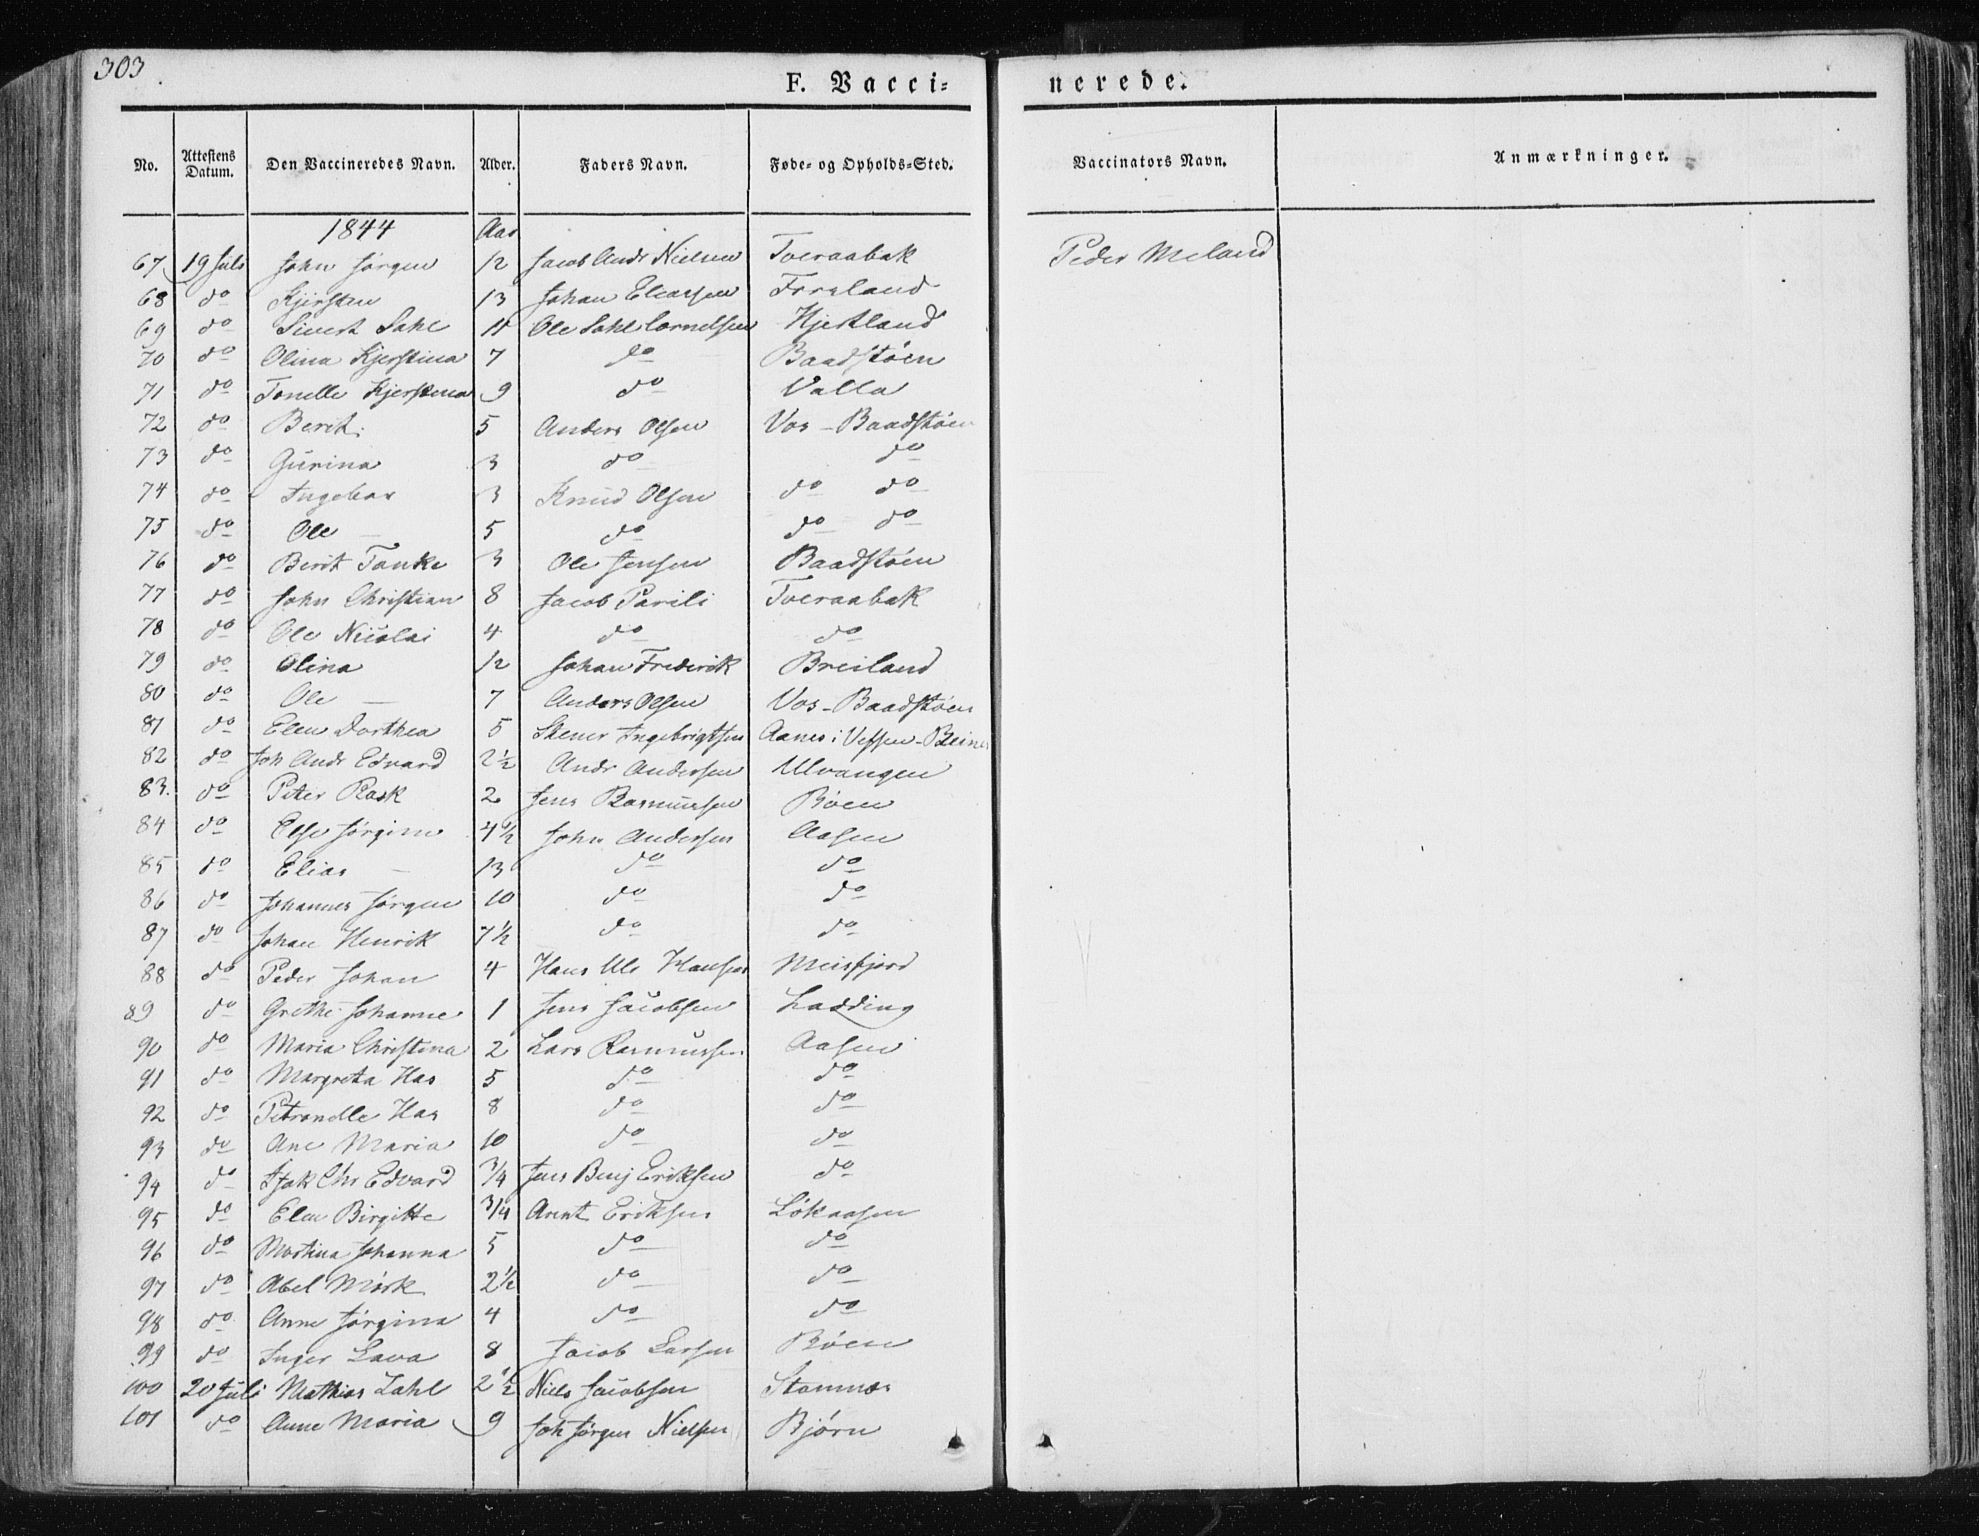 303
F. Vacci-
nerede.
No. Attestens Datum. Den Vaccineredes Navn. Alder. Faders Navn. Føde- og Opholds-Sted. Vaccinators Navn. Anmærkninger.
1844 Aar
67 19 Juli John Jørgen 12 Jacob Andr Nielsen Tveraabak Peder Meland
68 do Kjersten 13 Johan Eliassen Forsland
69 do Sivert Dahl 11 Ole Dahl Cornelsen Hjertland
70 do Olina Kjerstina 7 do Baadstøen
71 do Tonelle Kjerstina 9 do Valla
72 do Berit 5 Anders Olsen Vos - Baadstøen
73 do Gurina 3 do do
74 do Ingebor 3 Knud Olsen do do
75 do Ole 5 do do do
76 do Berit Tonke 3 Ole Jensen Baadstøen
77 do John Christian 8 Jacob Parili Tveraabak
78 do Ole Nicolai 4 do do
79 do Olina 12 Johan Frederik Breiland
80 do Ole 7 Anders Olsen Vos - Baadstøen
81 do Elen Dorthea 5 Stener Ingebrigtsen Aanes i Vefsen -
82 do Joh Andr Edvard 2½ Andr Andersen Ulvangen
83. do Peter Rask 2 Jens Rasmussen Bøen
84 do Else Jørgine 4½ John Andersen Aasen
85 do Elias 13 do do
86 do Johannes Jørgen 10 do do
87 do Johan Henrik 7½ do do
88 do Peder Johan 4 Hans Ule Hansen Meisfjord
89 do Grethe Johanne 1 Jens Jacobsen Ladding
90 do Maria Christina 2 Lars Rasmussen Aasen
91 do Margreta Has 5 do do
92 do Petronelle Has 8 do do
93 do Ane Maria 10 do do
94 do Isak Chr Edvard 3/4 Jens Benj Eriksen do
95 do Elen Birgitte 3/4 Arent Eriksen Løkaasen
96 do Martina Johanna 5 do do
97 do Abel Mørk 2½ do do
98 do Anne Jørgina 4 do do
99 do Inger Lava 8 Jacob Larsen Bøen
100 20 Juli Mathias Zahl 2½ Niels Jacobsen Stamnes
101 do Anne Maria 9 Joh Jørgen Nielsen Bjørn